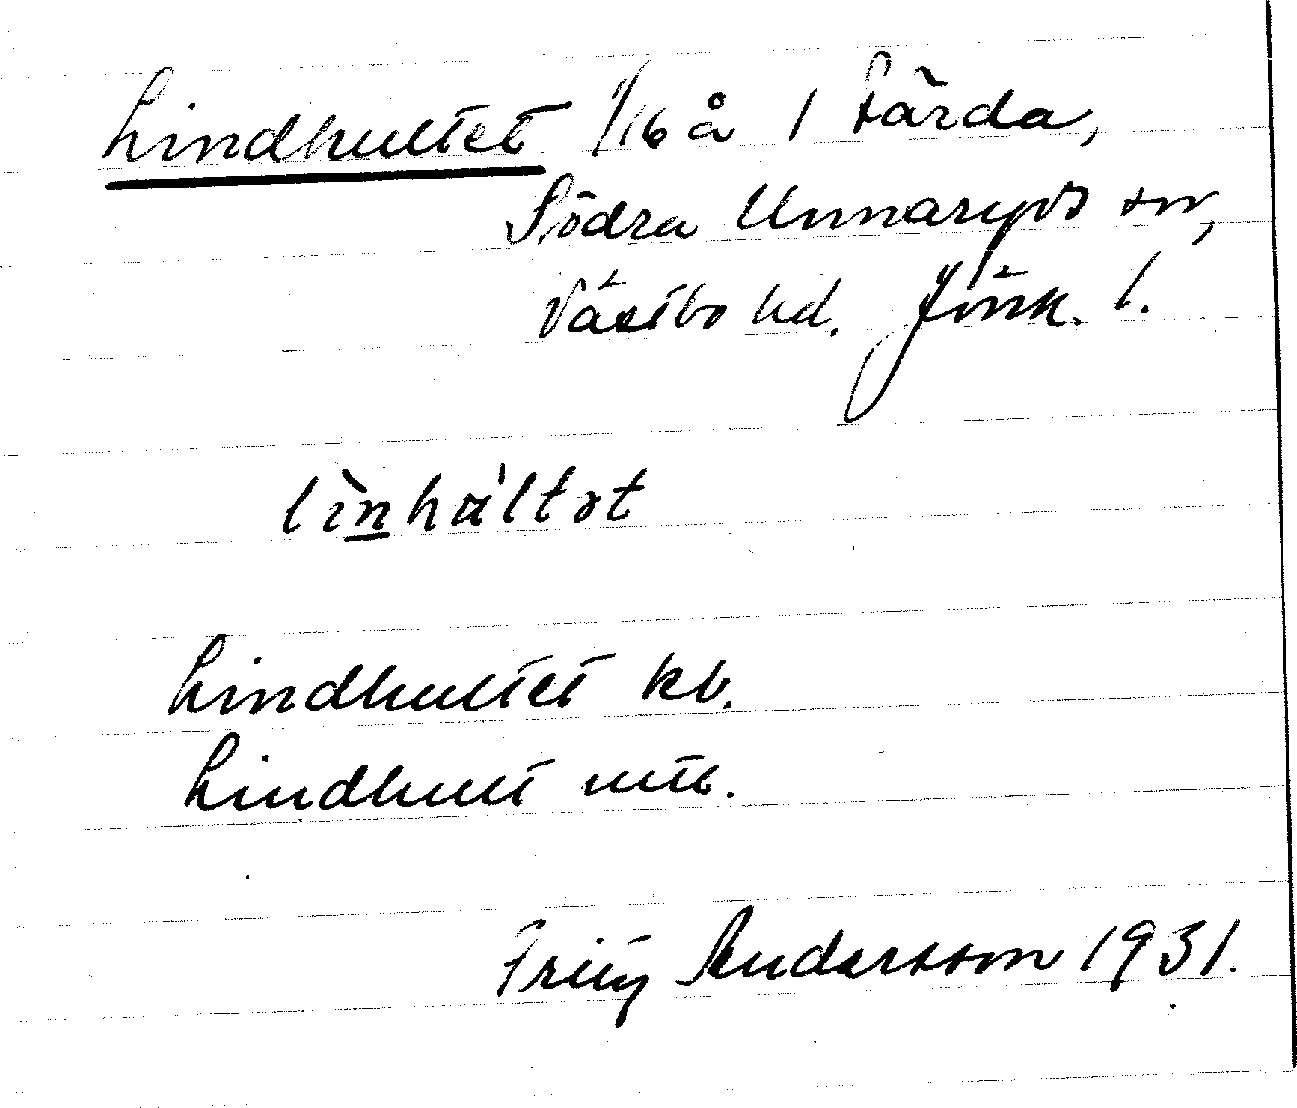 Lindhultet 1/16 å 1 Färda,
Södra Unnaryds sn,
Västbo hd. Jönk. l.
Lindhultet kb.
Lindhult mtb.
Fritz Andersson 1931.